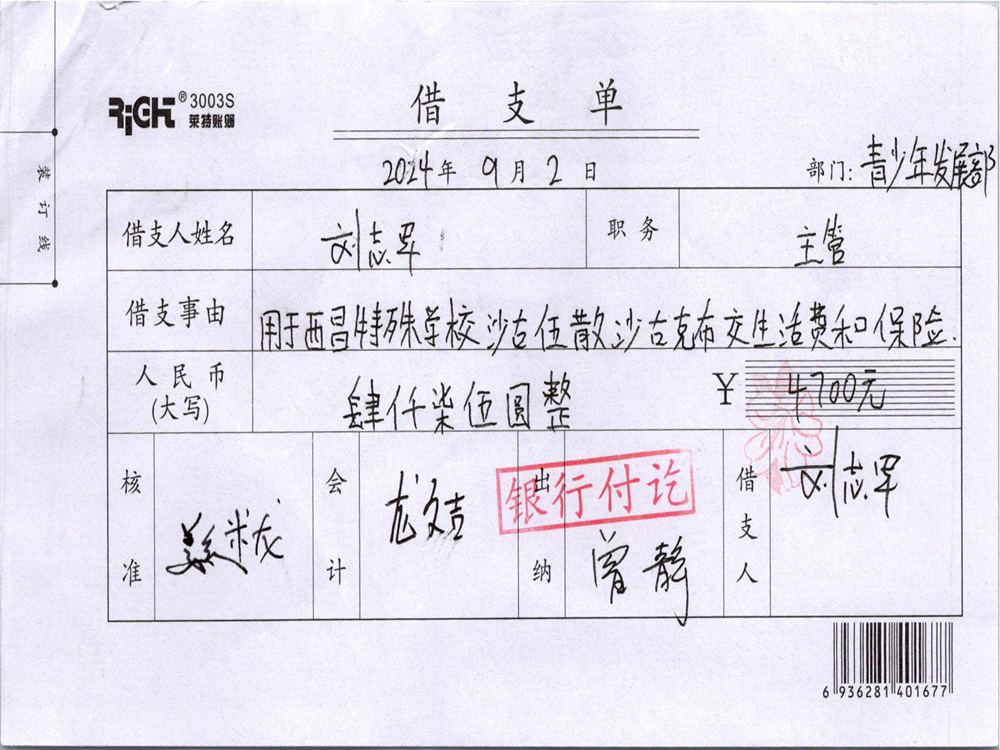 RiGHT® 3003S
莱特账簿
借支单
2024年9月2日
部门:青少年发展部
装订线
借支人姓名 刘志军 职务 主管
借支事由 用于西昌特殊学校沙古伍散沙古克布交生活费和保险.
人民币(大写) 肆仟柒伍圆整 ¥ 4700元
核准 米龙 会计 龙文吉 出纳 曾静 借支人 刘志军
银行付讫
6 936281 401677